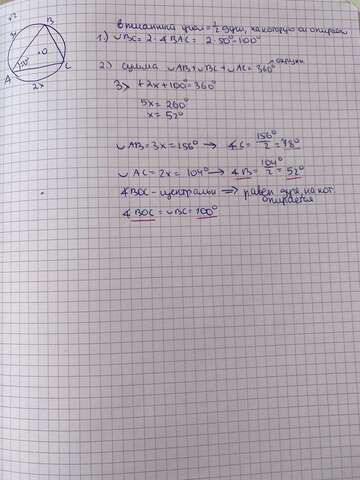 √2
вписанный угол = 1/2 дуги, на которую он опирается
B
1) ◡BC = 2·∢BAC = 2·50° = 100°
O
50°
A
C
2x
2) сумма ◡AB+◡BC+◡AC = 360° окружн
3x + 2x + 100° = 360°
5x = 260°
x = 52°
◡AB = 3x = 156° → ∢C = 156°/2 = 78°
◡AC = 2x = 104° → ∢B = 104°/2 = 52°
∢BOC - центральн ⇒ равен дуге, на кот.
опирается
∢BOC = ◡BC = 100°